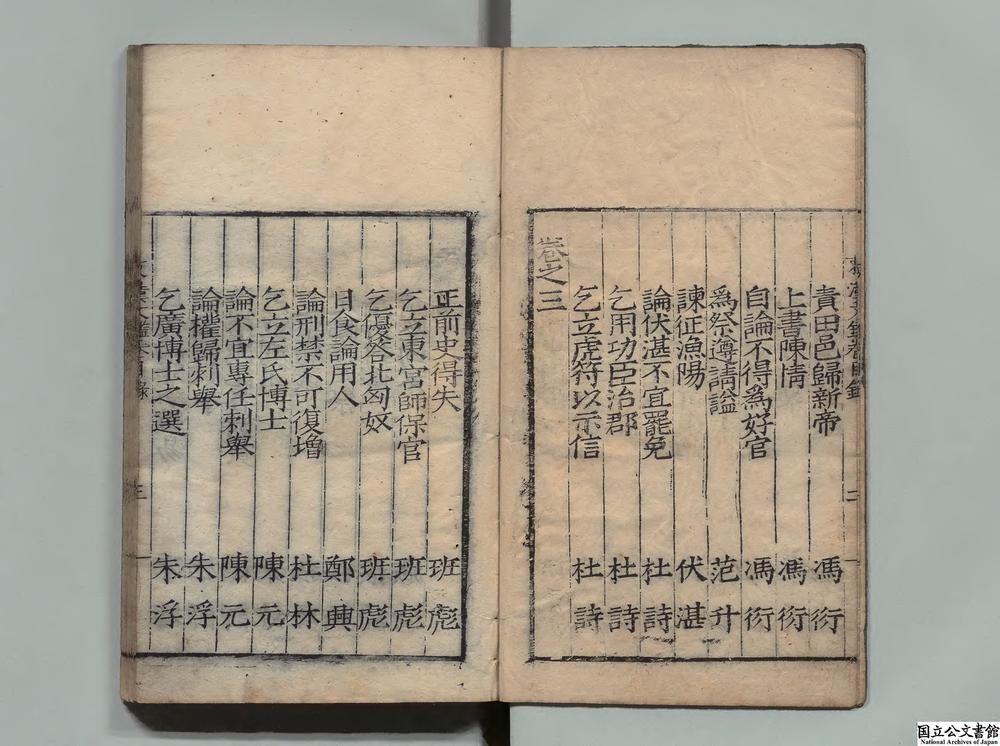 責田邑歸新帝 馮衍
上書陳情 馮衍
自論不得爲好官 馮衍
爲祭遵請謚 范升
諫征漁陽 伏湛
論伏湛不宜罷免 杜詩
乞用功臣治郡 杜詩
乞立虎符以示信 杜詩
卷之三
正前史得失 班彪
乞立東宮師保官 班彪
乞優答北匈奴 班彪
日食論用人 鄭興
論刑禁不可復增 杜林
乞立左氏博士 陳元
論不宜專任刺舉 陳元
論權歸刺舉 朱浮
乞廣博士之選 朱浮
三
国立公文書館
National Archives of Japan